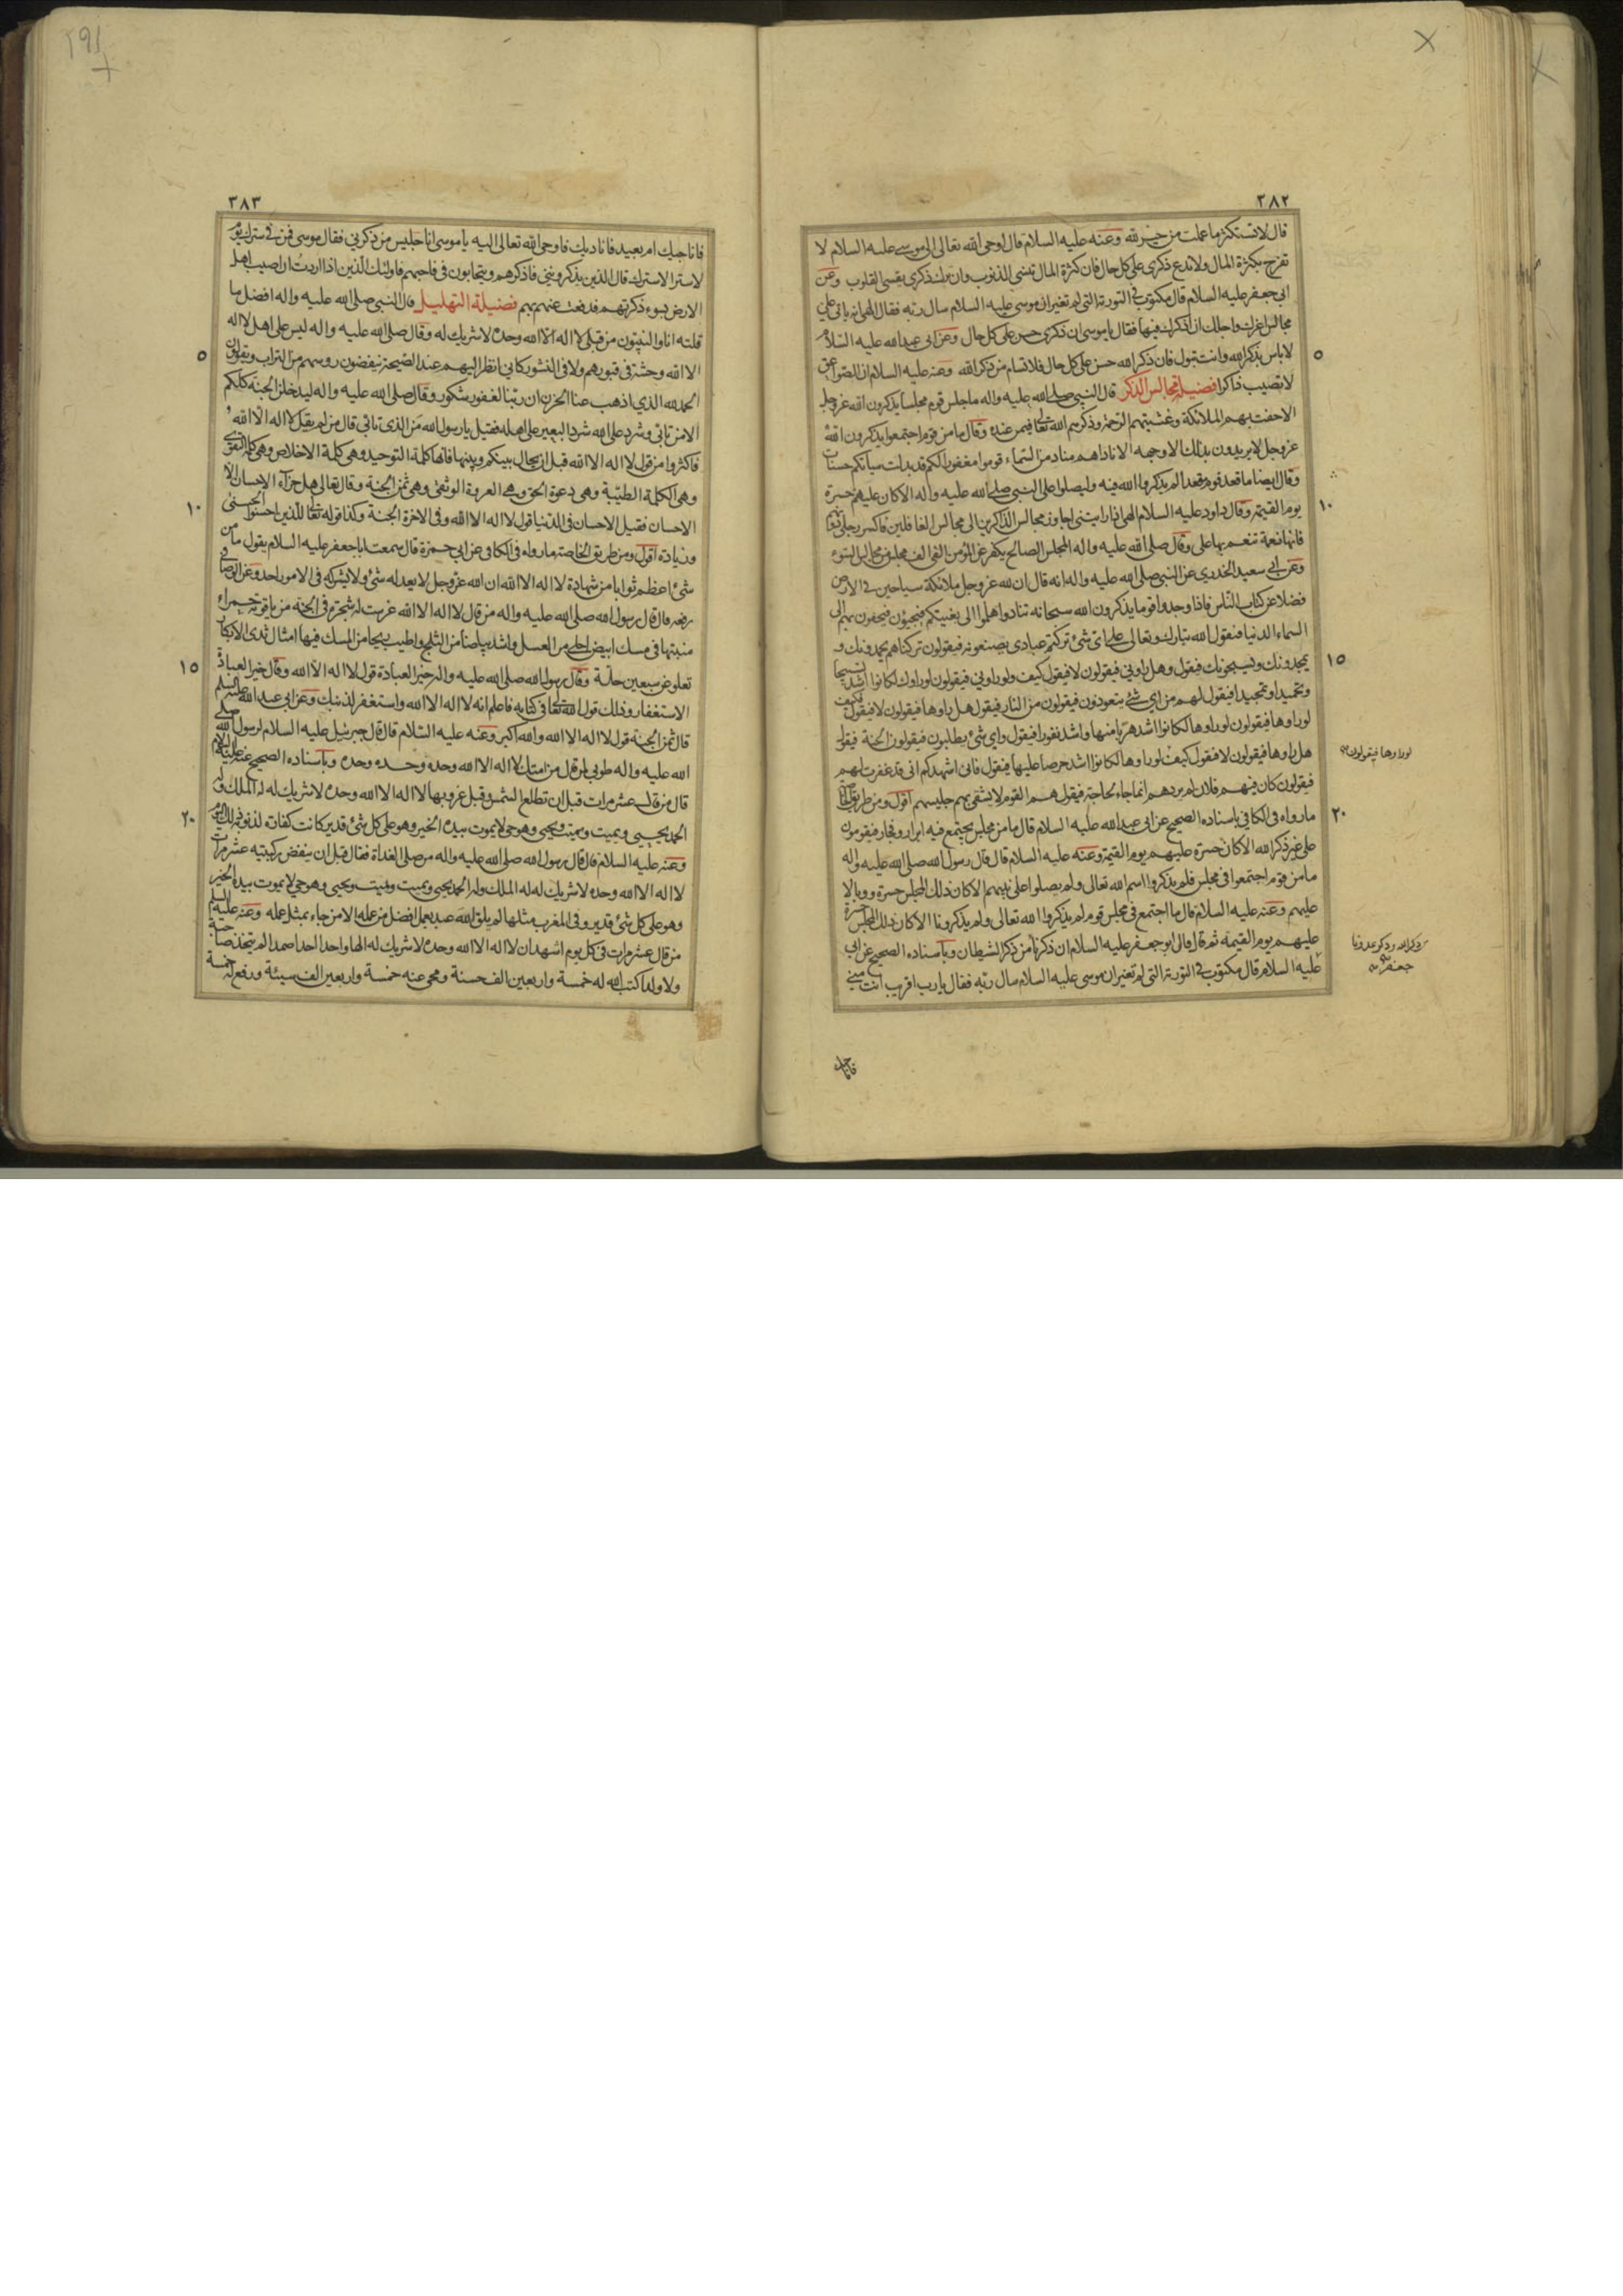 ٣٨٢
قال لا تستكثر ما عملت من خير لله وعنه عليه السلام قال اوحى الله تعالى الى موسى عليه السلام لا
تفرح بكثرة المال ولا تدع ذكرى على كل حال فان كثرة المال تنسى الذنوب وان ترك ذكرى يقسى القلوب وعن
ابى جعفر عليه السلام قال مكتوب فى التورية التى لم تغير ان موسى عليه السلام سال ربه فقال الهى انه ياتى على
مجالس اعزك واجلك ان اذكرك فيها فقال يا موسى ان ذكرى حسن على كل حال وعن ابى عبد الله عليه السلام
٥
لا باس بذكر الله وانت تبول فان ذكر الله حسن على كل حال فلا تسام من ذكر الله وعنه عليه السلام ان الصواعق
لا تصيب ذاكرا فضيلة مجالس الذكر قال النبى صلى الله عليه واله ما جلس قوم مجلسا يذكرون الله عز وجل
الا حفت بهم الملائكة وغشيتهم الرحمة وذكرهم الله تعالى فيمن عنده وقال ما من قوم اجتمعوا يذكرون الله
عز وجل لا يريدون بذلك الا وجهه الا ناداهم مناد من السماء قوموا مغفورا لكم قد بدلت سياتكم حسنات
وقال ايضا ما قعد قوم مقعدا لم يذكروا الله فيه ولم يصلوا على النبى صلى الله عليه واله الا كان عليهم حسرة
١٠
يوم القيمة وقال داود عليه السلام الهى اذا رايتنى اجاوز مجالس الذاكرين الى مجالس الغافلين فاكسر رجلى
فانها نعمة تنعم بها على وقال صلى الله عليه واله المجلس الصالح يكفر عن المؤمن الفى الف مجلس من مجالس السوء
وعن ابى سعيد الخدرى عن النبى صلى الله عليه واله انه قال ان لله عز وجل ملائكة سياحين فى الارض
فضلا عن كتاب الناس فاذا وجدوا قوما يذكرون الله سبحانه تنادوا هلموا الى بغيتكم فيجيؤن فيحفون بهم الى
السماء الدنيا فيقول الله تبارك وتعالى على اى شئ تركتم عبادى يصنعونه فيقولون تركناهم يحمدونك و
١٥
يمجدونك ويسبحونك فيقول وهل راونى فيقولون لا فيقول كيف ولو راونى فيقولون لو راوك لكانوا اشد تسبيحا
وتحميدا وتمجيدا فيقول لهم من اى شئ يتعوذون فيقولون من النار فيقول هل راوها فيقولون لا فيقول فكيف
لو راوها فيقولون لو راوها لكانوا اشد هربا منها واشد نفورا فيقول واى شئ يطلبون فيقولون الجنة فيقول
هل راوها فيقولون لا فيقول كيف لو راوها لكانوا اشد حرصا عليها فيقول فانى اشهدكم انى قد غفرت لهم
لو راوها فيقولون
فيقولون كان فيهم فلان لم يردهم انما جاء لحاجة فيقول هم القوم لا يشقى بهم جليسهم اقول ومن طريق الخاصة
٢٠
ما رواه فى الكافى باسناده الصحيح عن ابى عبد الله عليه السلام قال ما من مجلس يجتمع فيه ابرار وفجار فيقومون
على غير ذكر الله الا كان حسرة عليهم يوم القيمة وعنه عليه السلام قال قال رسول الله صلى الله عليه واله
ما من قوم اجتمعوا فى مجلس فلم يذكروا اسم الله تعالى ولم يصلوا على نبيهم الا كان ذلك المجلس حسرة ووبالا
عليهم وعنه عليه السلام قال ما اجتمع فى مجلس قوم لم يذكروا الله تعالى ولم يذكرونا الا كان ذلك المجلس حسرة
عليهم يوم القيمة ثم قال قال ابو جعفر عليه السلام ان ذكرنا من ذكر الشيطان وباسناده الصحيح عن ابى
جعفر
عليه السلام قال مكتوب فى التورية التى لم تغير ان موسى عليه السلام سال ربه فقال يا رب اقريب انت منى
٣٨٣
فاناجيك ام بعيد فاناديك فاوحى الله تعالى اليه يا موسى انا جليس من ذكرنى فقال موسى فمن فى سترك يوم
لا ستر الا سترك قال الذين يذكروننى فاذكرهم ويتحابون فى فاحبهم فاولئك الذين اذا اردت ان اصيب اهل
الارض بسوء ذكرتهم فدفعت عنهم بهم فضيلة التهليل قال النبى صلى الله عليه واله افضل ما
قلته انا والنبيون من قبلى لا اله الا الله وحده لا شريك له وقال صلى الله عليه واله ليس على اهل لا اله
٥
الا الله وحشة فى قبورهم ولا فى النشور كانى انظر اليهم عند الصيحة ينفضون رؤسهم من التراب ويقولون
الحمد لله الذى اذهب عنا الحزن ان ربنا لغفور شكور وقال صلى الله عليه واله ليدخلن الجنة كلكم
الا من تابى وشرد على الله شرد البعير على اهله فقيل يا رسول الله من الذى تابى قال من لم يقل لا اله الا الله
فاكثروا من قول لا اله الا الله قبل ان يحال بينكم وبينها فانها كلمة التوحيد وهى كلمة الاخلاص وهى كلمة التقوى
وهى الكلمة الطيبة وهى دعوة الحق وهى العروة الوثقى وهى ثمن الجنة وقال تعالى هل جزاء الاحسان الا
١٠
الاحسان فقيل الاحسان فى الدنيا قول لا اله الا الله وفى الاخرة الجنة وكذا قوله تعالى للذين احسنوا الحسنى
وزيادة اقول ومن طريق الخاصة ما رواه فى الكافى عن ابى حمزة قال سمعت ابا جعفر عليه السلام يقول ما من
شئ اعظم ثوابا من شهادة لا اله الا الله ان الله عز وجل لا يعدله شئ ولا يشركه فى الامور احد وعن الوصافى
رفعه قال قال رسول الله صلى الله عليه واله من قال لا اله الا الله غرست له شجرة فى الجنة من ياقوتة حمراء
منبتها فى مسك ابيض احلى من العسل واشد بياضا من الثلج واطيب ريحا من المسك فيها امثال ثدى الابكار
١٥
تعلو عن سبعين حلة وقال رسول الله صلى الله عليه واله خير العبادة قول لا اله الا الله وقال خير العبادة
الاستغفار وذلك قول الله تعالى فى كتابه فاعلم انه لا اله الا الله واستغفر لذنبك وعن ابى عبد الله عليه السلم
قال ثمن الجنة قول لا اله الا الله والله اكبر وعنه عليه السلام قال قال جبرئيل عليه السلام لرسول الله صلى
الله عليه واله طوبى لمن قال من امتك لا اله الا الله وحده وحده وحده وباسناده الصحيح عنه عليه السلام
قال من قال عشر مرات قبل ان تطلع الشمس وقبل غروبها لا اله الا الله وحده لا شريك له له الملك وله
٢٠
الحمد يحيى ويميت ويميت ويحيى وهو حى لا يموت بيده الخير وهو على كل شئ قدير كانت كفارة لذنوبه ذلك اليوم
وعنه عليه السلام قال قال رسول الله صلى الله عليه واله من صلى الغداة فقال قبل ان ينفض ركبتيه عشر مرات
لا اله الا الله وحده لا شريك له له الملك وله الحمد يحيى ويميت ويميت ويحيى وهو حى لا يموت بيده الخير
وهو على كل شئ قدير وفى المغرب مثلها لم يلق الله عبد بعمل افضل من عمله الا من جاء بمثل عمله وعنه عليه السلم
من قال عشر مرات فى كل يوم اشهد ان لا اله الا الله وحده لا شريك له الها واحدا احدا صمدا لم يتخذ صاحبة
ولا ولدا كتب الله له خمسة واربعين الف حسنة ومحى عنه خمسة واربعين الف سيئة ورفع له خمسة